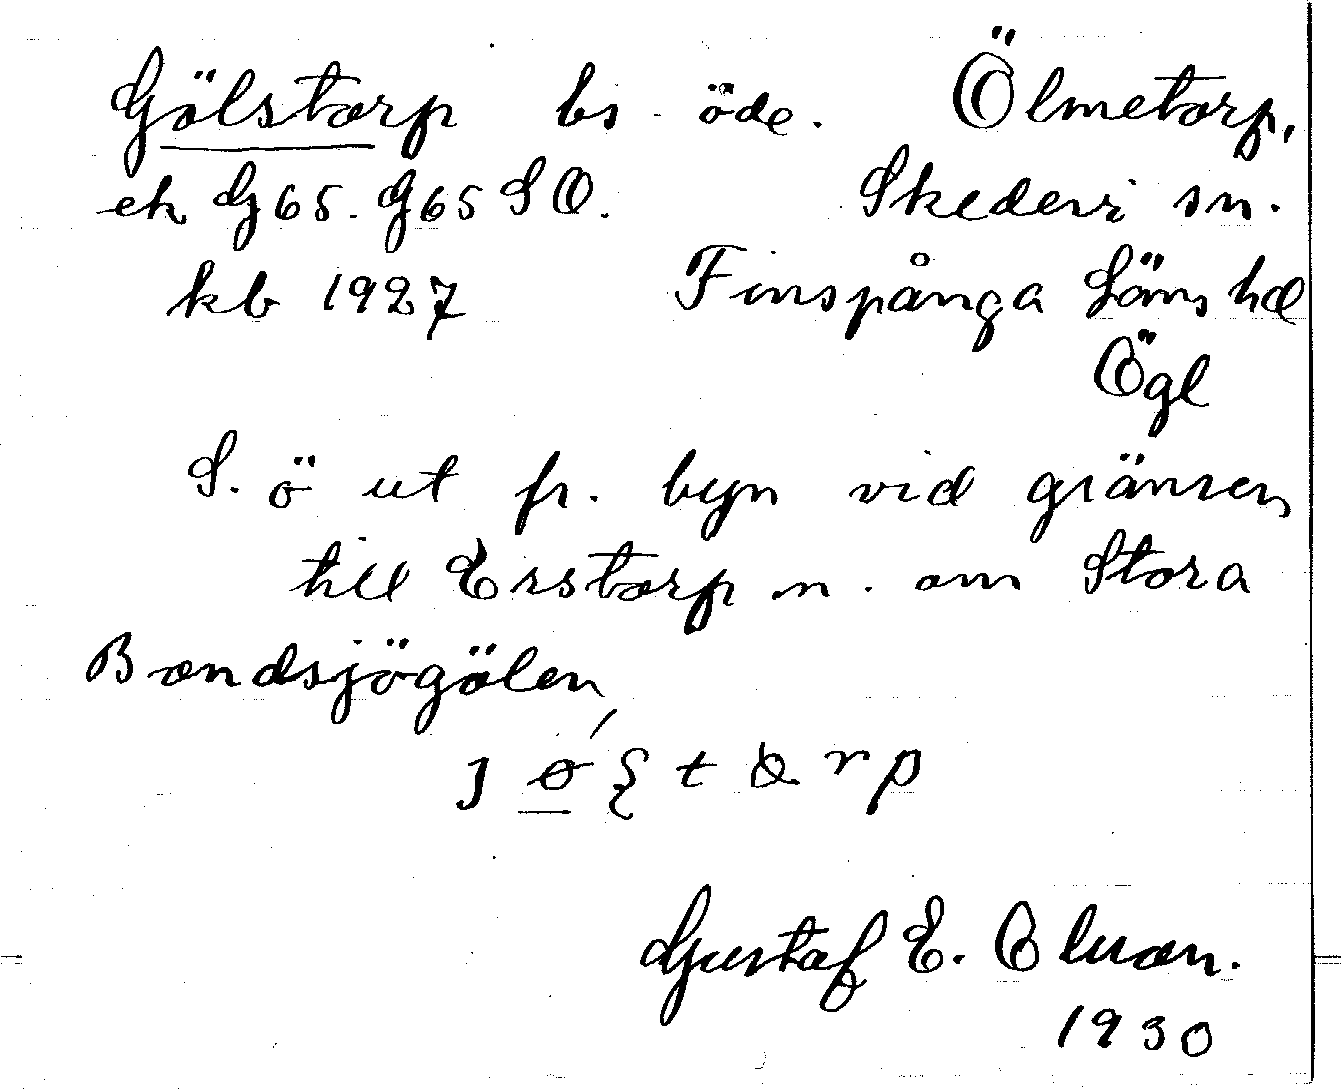 Gölstorp bs öde. Ölmetorp,
ek G65. G65 SO. Skedevi sn.
kb 1927 Finspånga Läns hd
Ögl
S. ö ut fr. byn vid gränsen
till Erstorp n. om Stora
Bondsjögölen
Gustaf E. Olsson.
1930